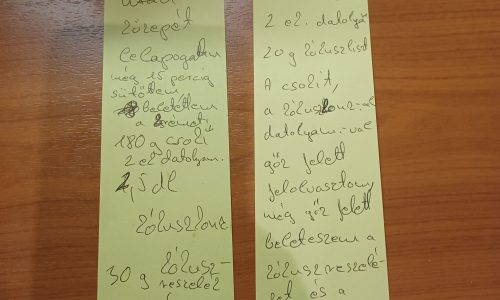 közepét
lelapogatom
még 15 percig
sütöttem
beletettem
a krémet:
180 g csoki
2 ek datolyam.
2,5 dl
kókuszkonz
30 g kókusz-
reszelék
2 ek. datolya
20 g kókuszliszt
A csokit,
a kókuszkonz-val
datolyam.-val
gőz felett
felolvasztom,
még gőz felett
beleteszem a
kókuszreszelé-
ket és a